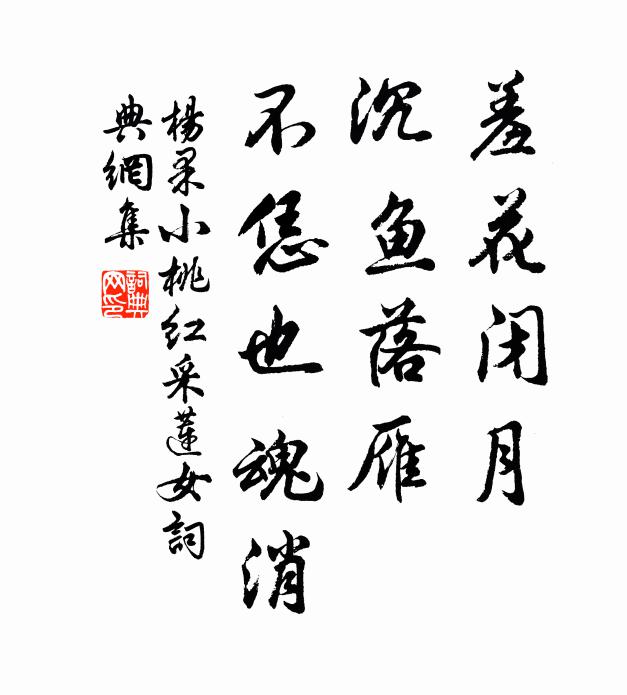 羞花闭月
沉鱼落雁
不恁也魂消
杨果小桃红采莲女词
典網集
詞典网印